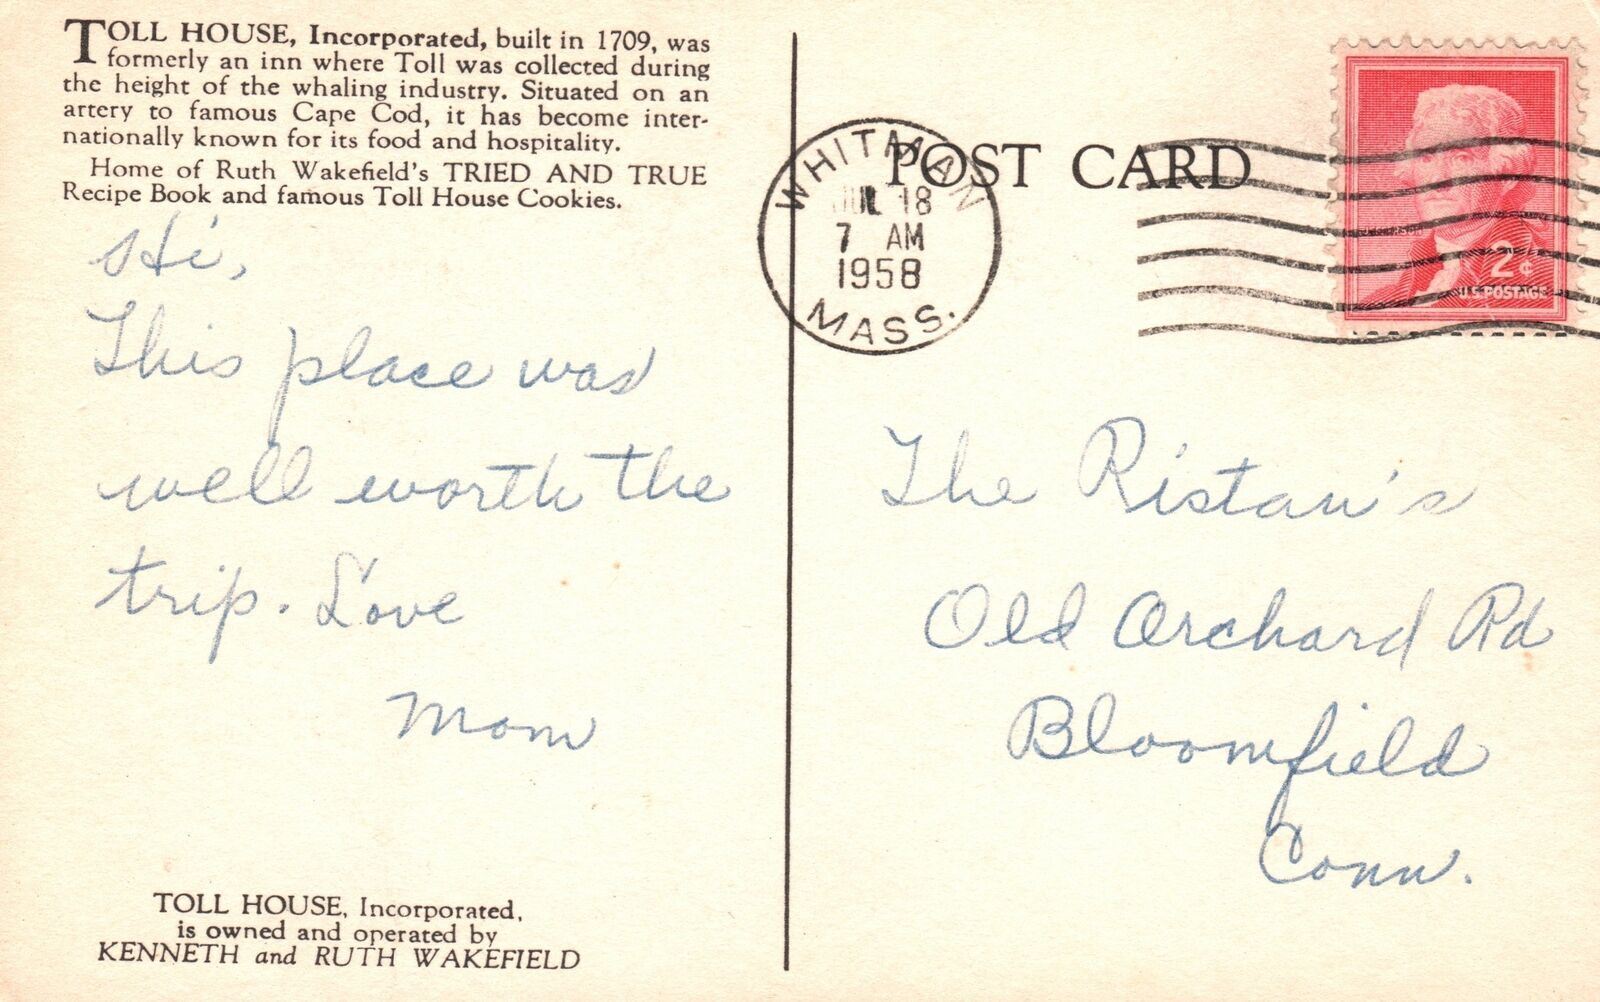 TOLL HOUSE, Incorporated, built in 1709, was
formerly an inn where Toll was collected during
the height of the whaling industry. Situated on an
artery to famous Cape Cod, it has become inter-
nationally known for its food and hospitality.
Home of Ruth Wakefield's TRIED AND TRUE
Recipe Book and famous Toll House Cookies.
Hi,
This place was
well worth the
trip. Love
Mom
TOLL HOUSE, Incorporated,
is owned and operated by
KENNETH and RUTH WAKEFIELD
POST CARD
WHITMAN
JUL 18
7 AM
1958
MASS.
JEFFERSON
2¢
U.S. POSTAGE
The Ristau's
Old Orchard Rd
Bloomfield
Conn.